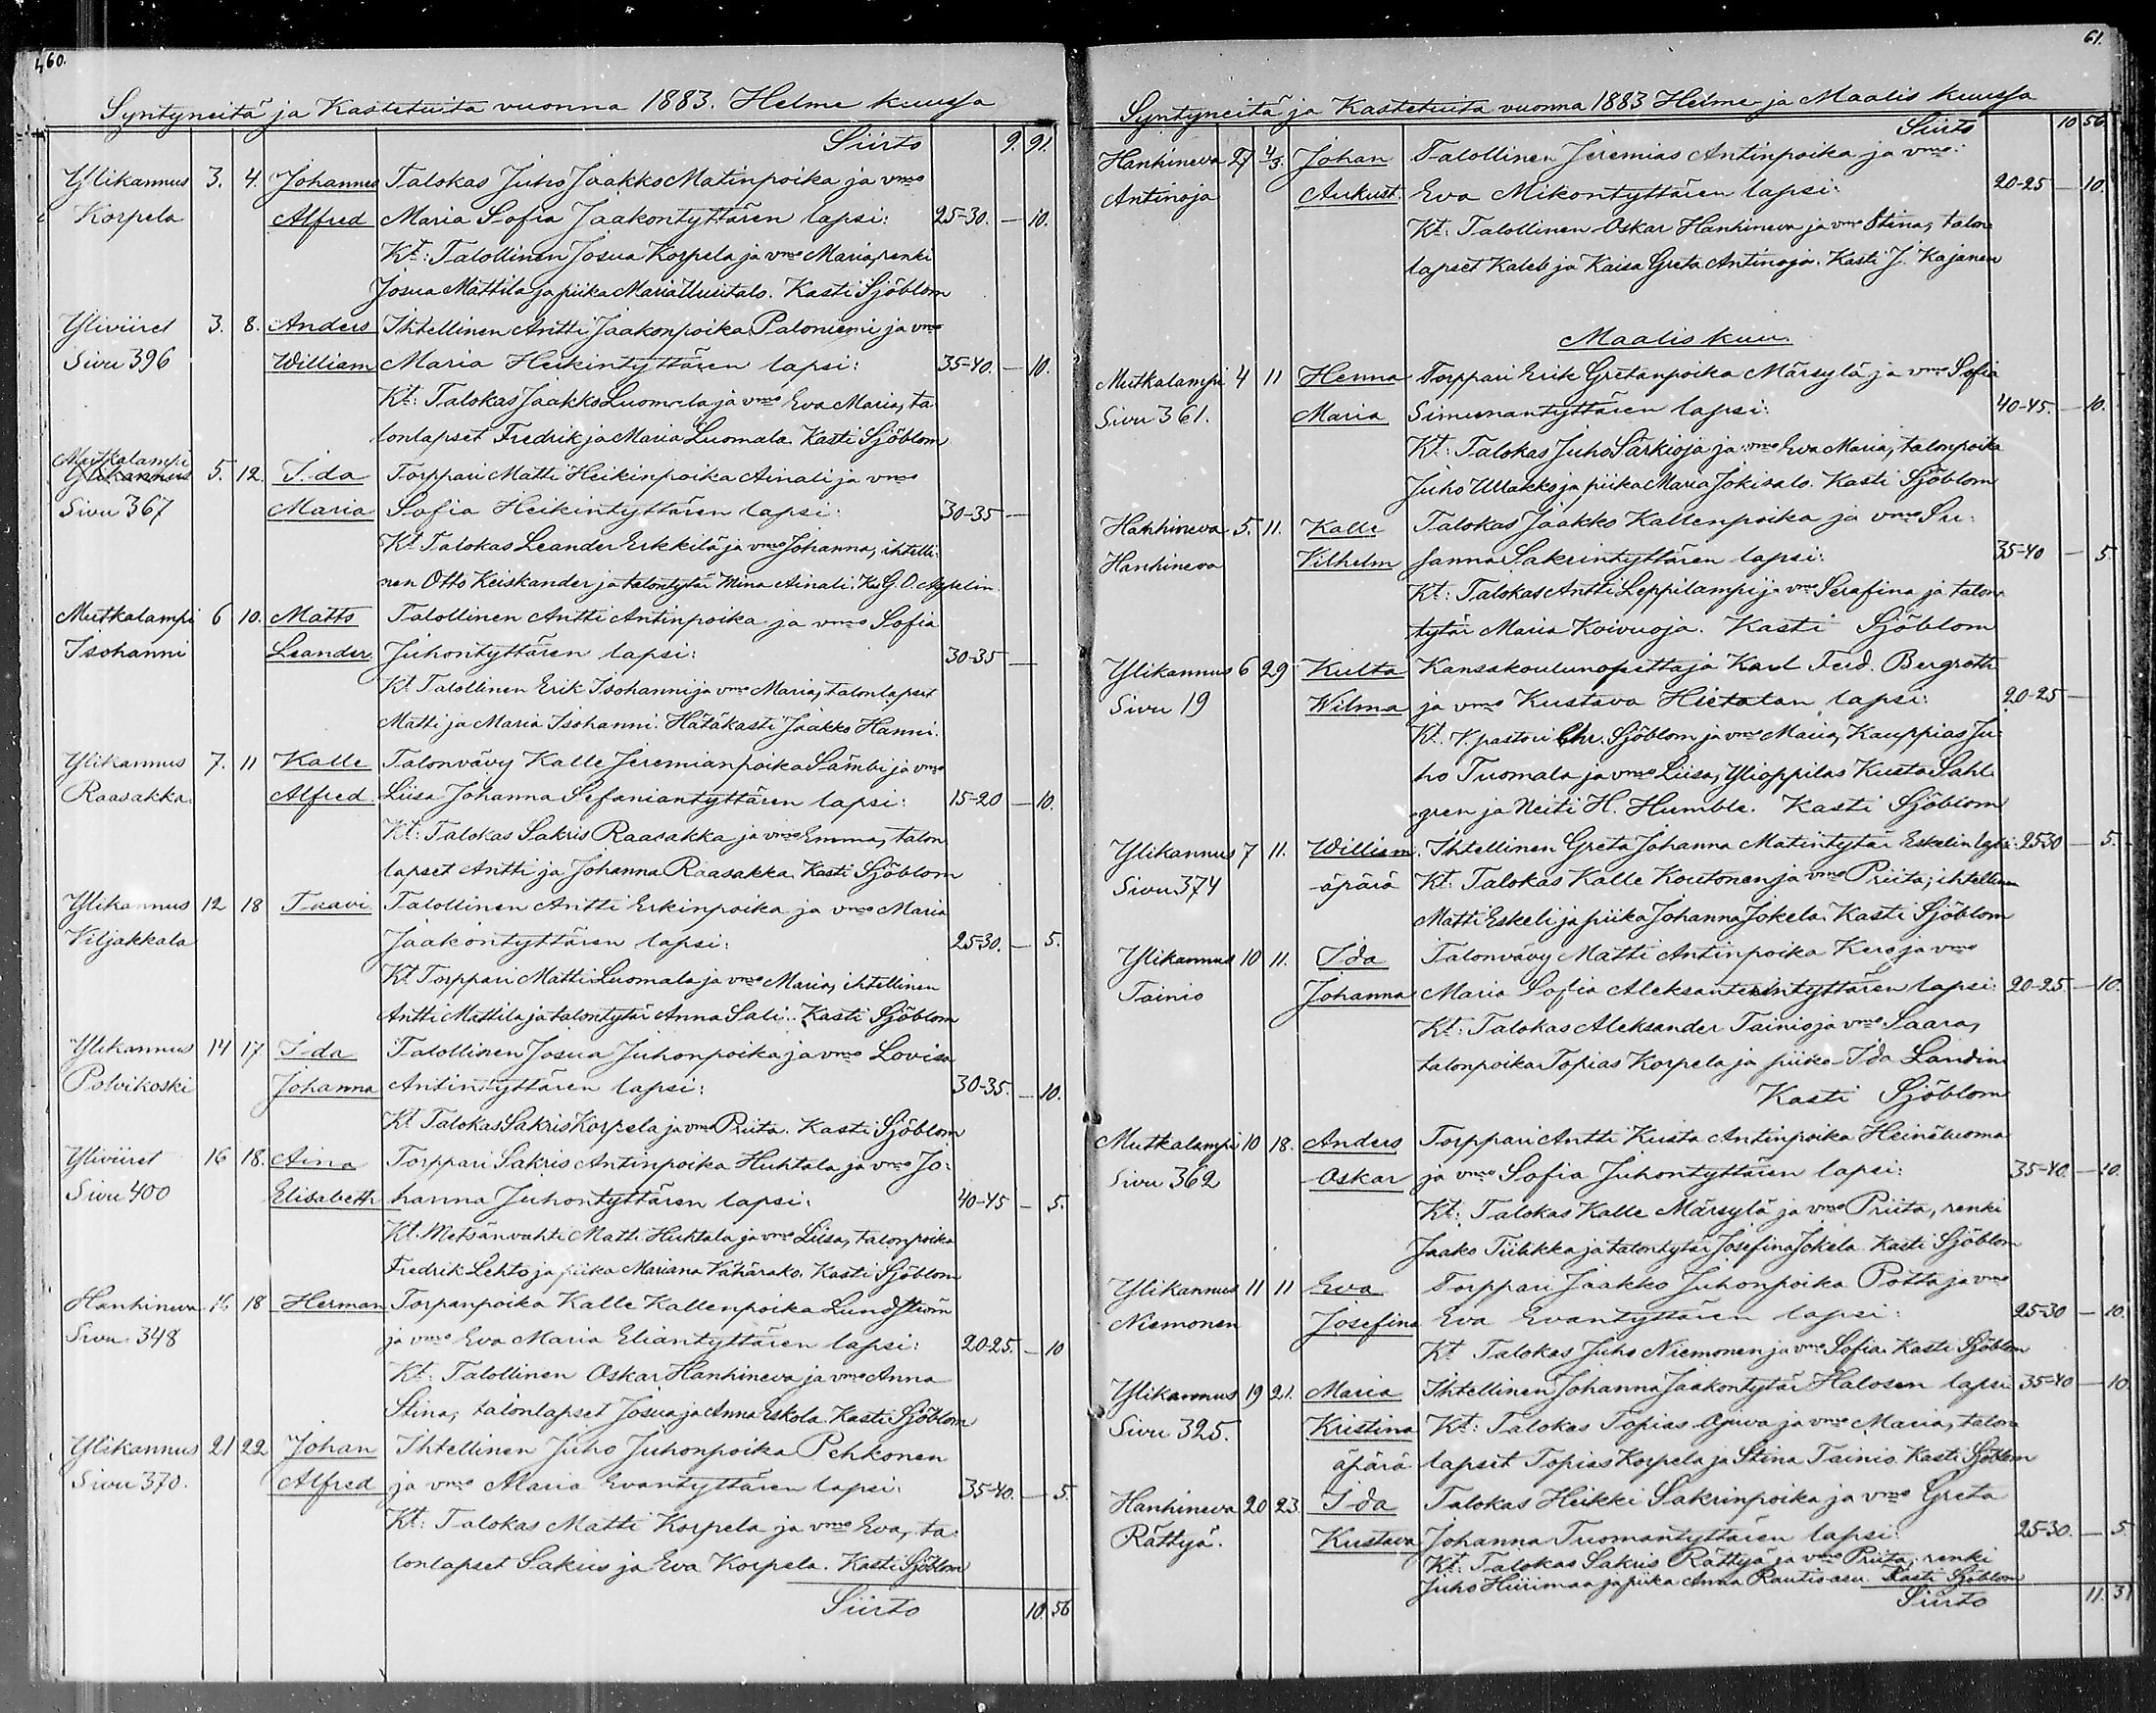 460.
Syntyneitä ja Kastetuita vuonna 1883. Helme kuussa
Siirto 9. 91.
Ylikannus 3. 4. Johannes Talokas Juho Jaakko Matinpoika ja vmo
Korpela Alfred Maria Sofia Jaakontyttären lapsi: 25-30. — 10.
Kt: Talollinen Josua Korpela ja vmo Maria, renki
Josua Mattila ja piika Maria Uusitalo. Kasti Sjöblom
Yliviiret 3. 8. Anders Ihtellinen Antti Jaakonpoika Paloniemi ja vmo
Sivu 396 William Maria Heikintyttären lapsi: 35-40. — 10.
Kt: Talokas Jaakko Luomala ja vmo Eva Maria, ta
lonlapset Fredrik ja Maria Luomala. Kasti Sjöblom
Mutkalampi
Ylikannus 5. 12. Ida Torppari Matti Heikinpoika Ainali ja vmo
Sivu 367 Maria Sofia Heikintyttären lapsi: 30-35 —
Kt Talokas Leander Erkkilä ja vmo Johanna, ihtelli
nen Otto Keiskander ja talontytär Mina Ainali. Ks G. O. Appelin
Mutkalampi 6 10. Matts Talollinen Antti Antinpoika ja vmo Sofia
Isohanni Leander Juhontyttären lapsi: 30-35 —
Kt Talollinen Erik Isohanni ja vmo Maria, talonlapset
Matti ja Maria Isohanni. Hätäkasti Jaakko Hanni.
Ylikannus 7. 11 Kalle Talonvävy Kalle Jeremianpoika Sämbi ja vmo
Raasakka Alfred Liisa Johanna Sefaniantyttären lapsi: 15-20 — 10.
Kt: Talokas Sakris Raasakka ja vmo Emma, talon
lapset Antti ja Johanna Raasakka. Kasti Sjöblom
Ylikannus 12 18 Taavi Talollinen Antti Erkinpoika ja vmo Maria
Viljakkala Jaakontyttären lapsi: 25-30. — 5.
Kt Torppari Matti Luomala ja vmo Maria, ihtellinen
Antti Mattila ja talontytär Anna Sali. Kasti Sjöblom
Ylikannus 14 17 Ida Talollinen Josua Juhonpoika ja vmo Lovisa
Polvikoski Johanna Antintyttären lapsi: 30-35. — 10.
Kt Talokas Sakris Korpela ja vmo Priita. Kasti Sjöblom
Yliviiret 16 18. Aina Torppari Sakris Antinpoika Huhtala ja vmo Jo
Sivu 400 Elisabeth hanna Juhontyttären lapsi: 40-45 — 5.
Kt. Metsänvahti Matti Huhtala ja vmo Liisa, talonpoika
Fredrik Lehto ja piika Mariana Vähärako. Kasti Sjöblom
Hanhineva 16 18 Herman Torpanpoika Kalle Kallenpoika Lundström
Sivu 348 ja vmo Eva Maria Eliantyttären lapsi: 20-25. — 10
Kt: Talollinen Oskar Hanhineva ja vmo Anna
Stina, talonlapset Josua ja Anna Eskola. Kasti Sjöblom
Ylikannus 21 22 Johan Ihtellinen Juho Juhonpoika Pehkonen
Sivu 370. Alfred ja vmo Maria Evantyttären lapsi: 35-40. — 5.
Kt: Talokas Matti Korpela ja vmo Eva, ta
lonlapset Sakris ja Eva Korpela. Kasti Sjöblom
Siirto 10. 56
61.
Syntyneitä ja Kastetuita vuonna 1883 Helme ja Maalis kuussa
Siirto 10 56.
Hanhineva 27 4/3. Johan Talollinen Jeremias Antinpoika ja vmo
Antinoja Aukust. Eva Mikontyttären lapsi: 20-25 — 10.
Kt: Talollinen Oskar Hanhineva ja vmo Stina, talon
lapset Kaleb ja Kaisa Greta Antinoja. Kasti J. Kajanen
Maalis kuu.
Mutkalampi 4 11 Henna Torppari Erik Gretanpoika Märsylä ja vmo Sofia
Sivu 361. Maria Simunantyttären lapsi: 40-45. — 10.
Kt: Talokas Juho Särkioja ja vmo Eva Maria, talonpoika
Juho Ullakko ja piika Maria Jokisalo. Kasti Sjöblom
Hanhineva 5. 11. Kalle Talokas Jaakko Kallenpoika ja vmo Su
Hanhineva Vilhelm sanna Sakrintyttären lapsi: 35-40 — 5
Kt: Talokas Antti Leppilampi ja vmo Serafina ja talon
tytär Maria Koivuoja. Kasti Sjöblom
Ylikannus 6 29 Kulta Kansakoulunopettaja Karl Ferd. Bergroth
Sivu 19 Wilma ja vmo Kustava Hietalan lapsi: 20-25 —
Kt. V. pastori Chr. Sjöblom ja vmo Maria, Kauppias Ju
ho Tuomala ja vmo Liisa, Ylioppilas Kusta Sahl
gren ja Neiti H. Humble. Kasti Sjöblom
Ylikannus 7 11. William. Ihtellinen Greta Johanna Matintytär Eskelin lapsi: 25-30 — 5.
Sivu 374 äpärä Kt: Talokas Kalle Koutonen ja vmo Priita, ihtellinen
Matti Eskeli ja piika Johanna Jokela. Kasti Sjöblom
Ylikannus 10 11. Ida Talonvävy Matti Antinpoika Kero ja vmo
Tainio Johanna Maria Sofia Aleksanterintyttären lapsi: 20-25 — 10.
Kt: Talokas Aleksander Tainio ja vmo Saara,
talonpoika Topias Korpela ja piika Ida Landin
Kasti Sjöblom
Mutkalampi 10 18. Anders Torppari Antti Kusta Antinpoika Heinäluoma
Sivu 362 Oskar ja vmo Sofia Juhontyttären lapsi: 35-40. — 10.
Kt: Talokas Kalle Märsylä ja vmo Priita, renki
Jaako Tiilikka ja talontytär Josefina Jokela. Kasti Sjöblom
Ylikannus 11 11 Eva Torppari Jaakko Juhonpoika Potta ja vmo
Niemonen Josefina Eva Evantyttären lapsi: 25-30 — 10.
Kt Talokas Juho Niemonen ja vmo Sofia. Kasti Sjöblom
Ylikannus 19 21. Maria Ihtellinen Johanna Jaakontytär Halosen lapsi 35-40 — 10
Sivu 325. Kristina Kt: Talokas Topias Ojuva ja vmo Maria, talon
äpärä lapset Topias Korpela ja Stina Tainio. Kasti Sjöblom
Hanhineva 20 23. Ida Talokas Heikki Sakrinpoika ja vmo Greta
Rättyä. Kustava Johanna Tuomantyttären lapsi: 25-30. — 5
Kt: Talokas Sakris Rättyä ja vmo Priita, renki
Juho Hiirimaa ja piika Anna Rautioaeu. Kasti Sjöblom
Siirto 11. 31